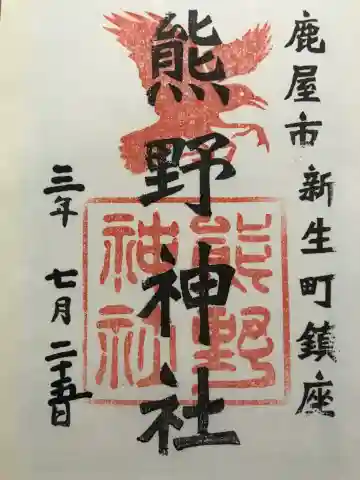 鹿屋市新生町鎮座
熊野神社
三年 七月 二十五日
熊野
神社